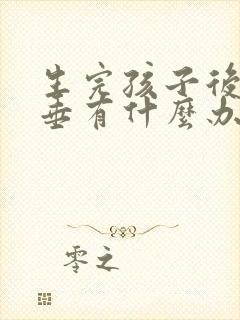 生完孩子後
垂有什麼办
零之